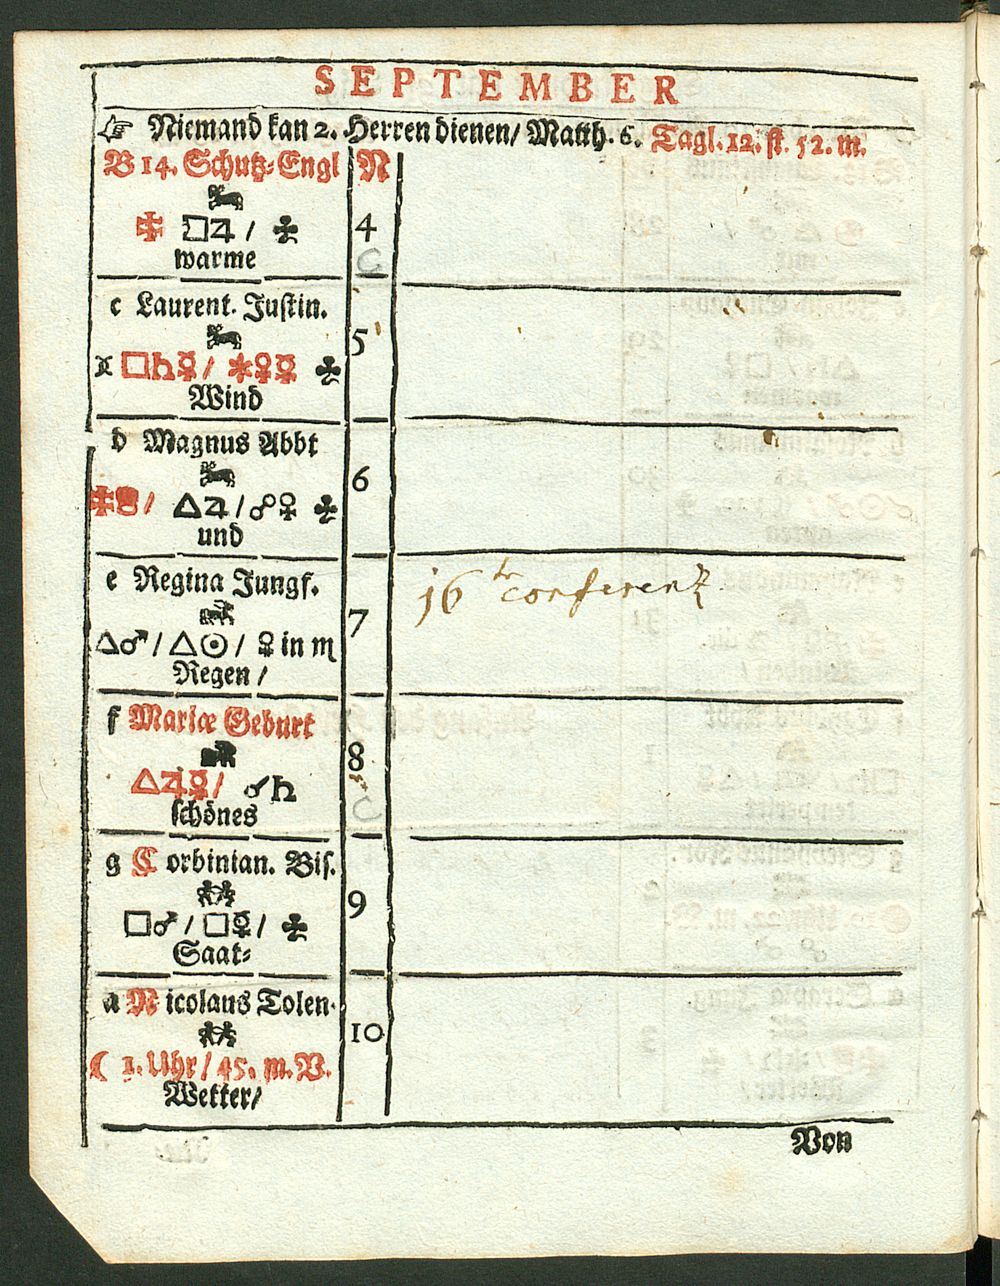 SEPTEMBER
☞ Niemand kan 2. Herren dienen/ Matth. 6. Tagl. 12. st. 52. m.
B 14. Schutz-Engl N
□♃/ ♣ 4
C
warme
c Laurent. Justin.
5
□♄☿/ ✱♀☿ ♣
Wind
d Magnus Abbt
6
△♃/☍♀ ♣
und
e Regina Jungf.
16te conferenz
7
△♂/△☉/ ♀ in ♏
Regen/
f Mariæ Geburt
8
△♃☿/ ☌♄
C
schönes
g Corbinian. Bis.
9
□♂/□☿/ ♣
Saat-
a Nicolaus Tolen.
10
☾ 1. Uhr/45. m. V.
Wetter/
Von